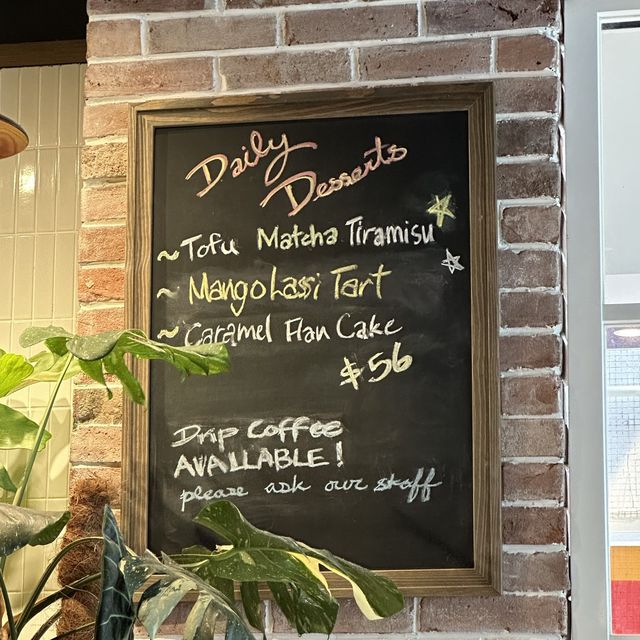 Daily
Desserts
~Tofu Matcha Tiramisu
~ Mango Lassi Tart
~ Caramel Flan Cake
$56
Drip Coffee
AVAILABLE!
please ask our staff